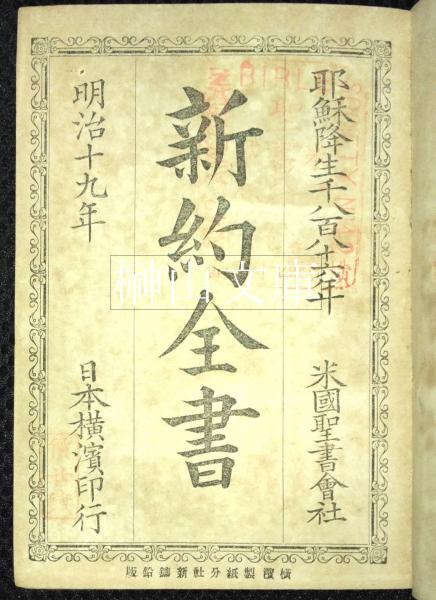 耶穌降生千八百八十六年
米國聖書會社
新約全書
明治十九年
日本橫濱印行
橫濱製紙分社新鑄鉛版
榊山文庫
BIBL